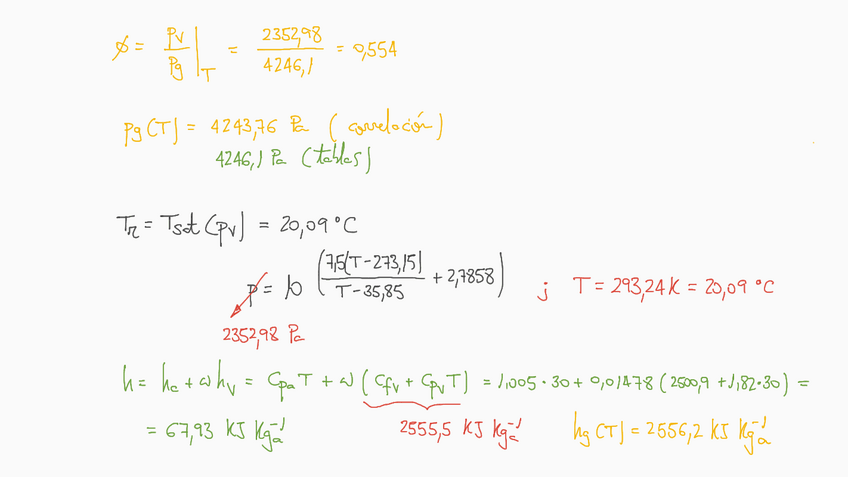 ϕ = pv/pg|T = 2352,98/4246,1 = 0,554
pg(T) = 4243,76 Pa (correlación)
4246,1 Pa (tablas)
Tr = Tsat(pv) = 20,09 °C
p = 10^(7,5(T-273,15)/(T-35,85) + 2,7858) ; T = 293,24 K = 20,09 °C
2352,98 Pa
h = ha + ω hv = Cpa T + ω (Cfv + Cpv T) = 1,005 · 30 + 0,01478 (2500,9 + 1,82·30) =
= 67,93 KJ Kga^-1 2555,5 KJ Kga^-1 hg(T) = 2556,2 KJ Kga^-1